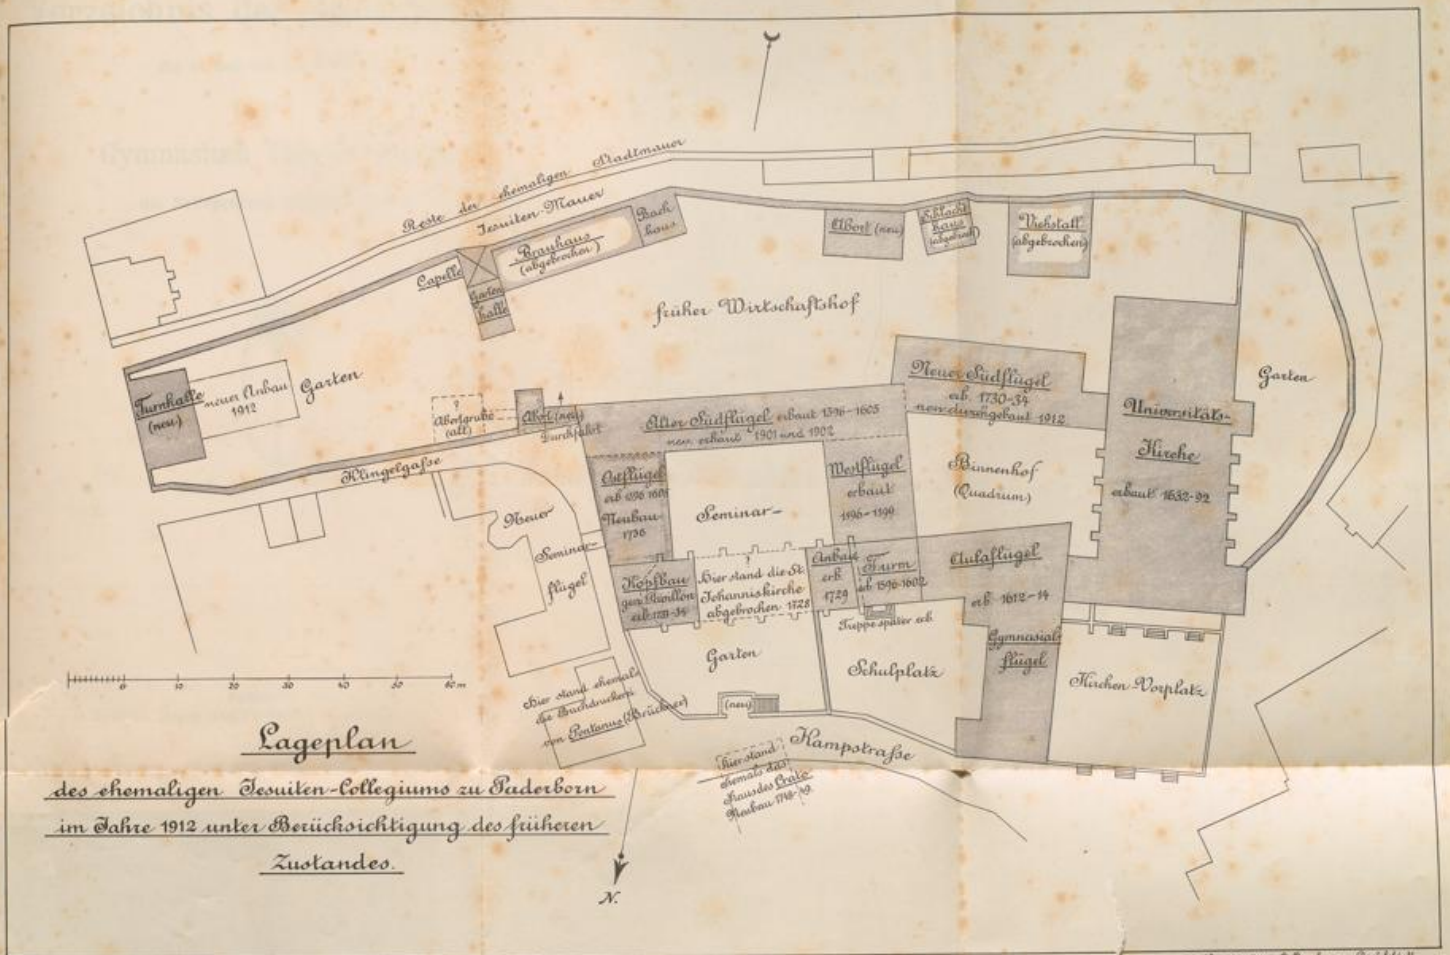 Reste der ehemaligen Stadtmauer
Jesuiten-Mauer
Brauhaus
(abgebrochen)
Back
haus
Capelle
Garten
halle
Abort (neu)
Schlacht
haus
(abgebroch)
Viehstall
(abgebrochen)
früher Wirtschaftshof
Garten
Turnhalle
(neu)
neuer Anbau
1912
Garten
?
Abortgrube
(alt)
Abort (neu)
Durchfahrt
Klingelgaſse
Alter Südflügel erbaut 1596-1605
neu erbaut 1901 und 1902
Neuer Südflügel
erb. 1730-34
neu durchgebaut 1912
Universitäts-
Kirche
erbaut 1682-92
Ostflügel
Neubau
1736
Seminar-
Westflügel
erbaut
1596-1599
Binnenhof
(Quadrum)
Neuer
Seminar-
flügel
Kopfbau
gen. Pavillon
?
Hier stand die St.
Johanniskirche
abgebrochen 1728
Anbau
erb.
1729
Turm
erb. 1596-1602
Aulaflügel
erb. 1612-14
Treppe später erb.
Gymnasial
flügel
Garten
(neu)
Schulplatz
Kirchen-Vorplatz
Hier stand ehemals
die Buchdruckerei
von Pontanus (Brückner)
Kampstraſse
Hier stand
ehemals das
Haus des Crato
Neubau 1748-49
0 10 20 30 40 50 60 m
Lageplan
des ehemaligen Jesuiten-Collegiums zu Paderborn
im Jahre 1912 unter Berücksichtigung des früheren
Zustandes.
N.